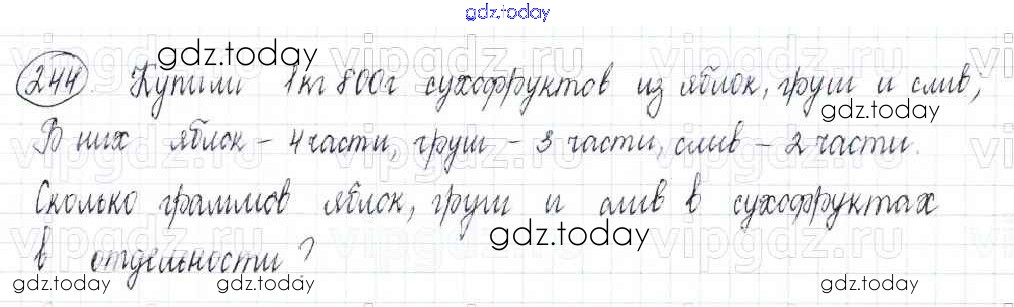 gdz.today
244. Купили 1кг 800г сухофруктов из яблок, груш и слив,
gdz.today
gdz.today
В них яблок - 4 части, груш - 3 части, слив - 2 части.
gdz.today
Сколько граммов яблок, груш и слив в сухофруктах
gdz.today
в отдельности?
gdz.today
gdz.today
gdz.today